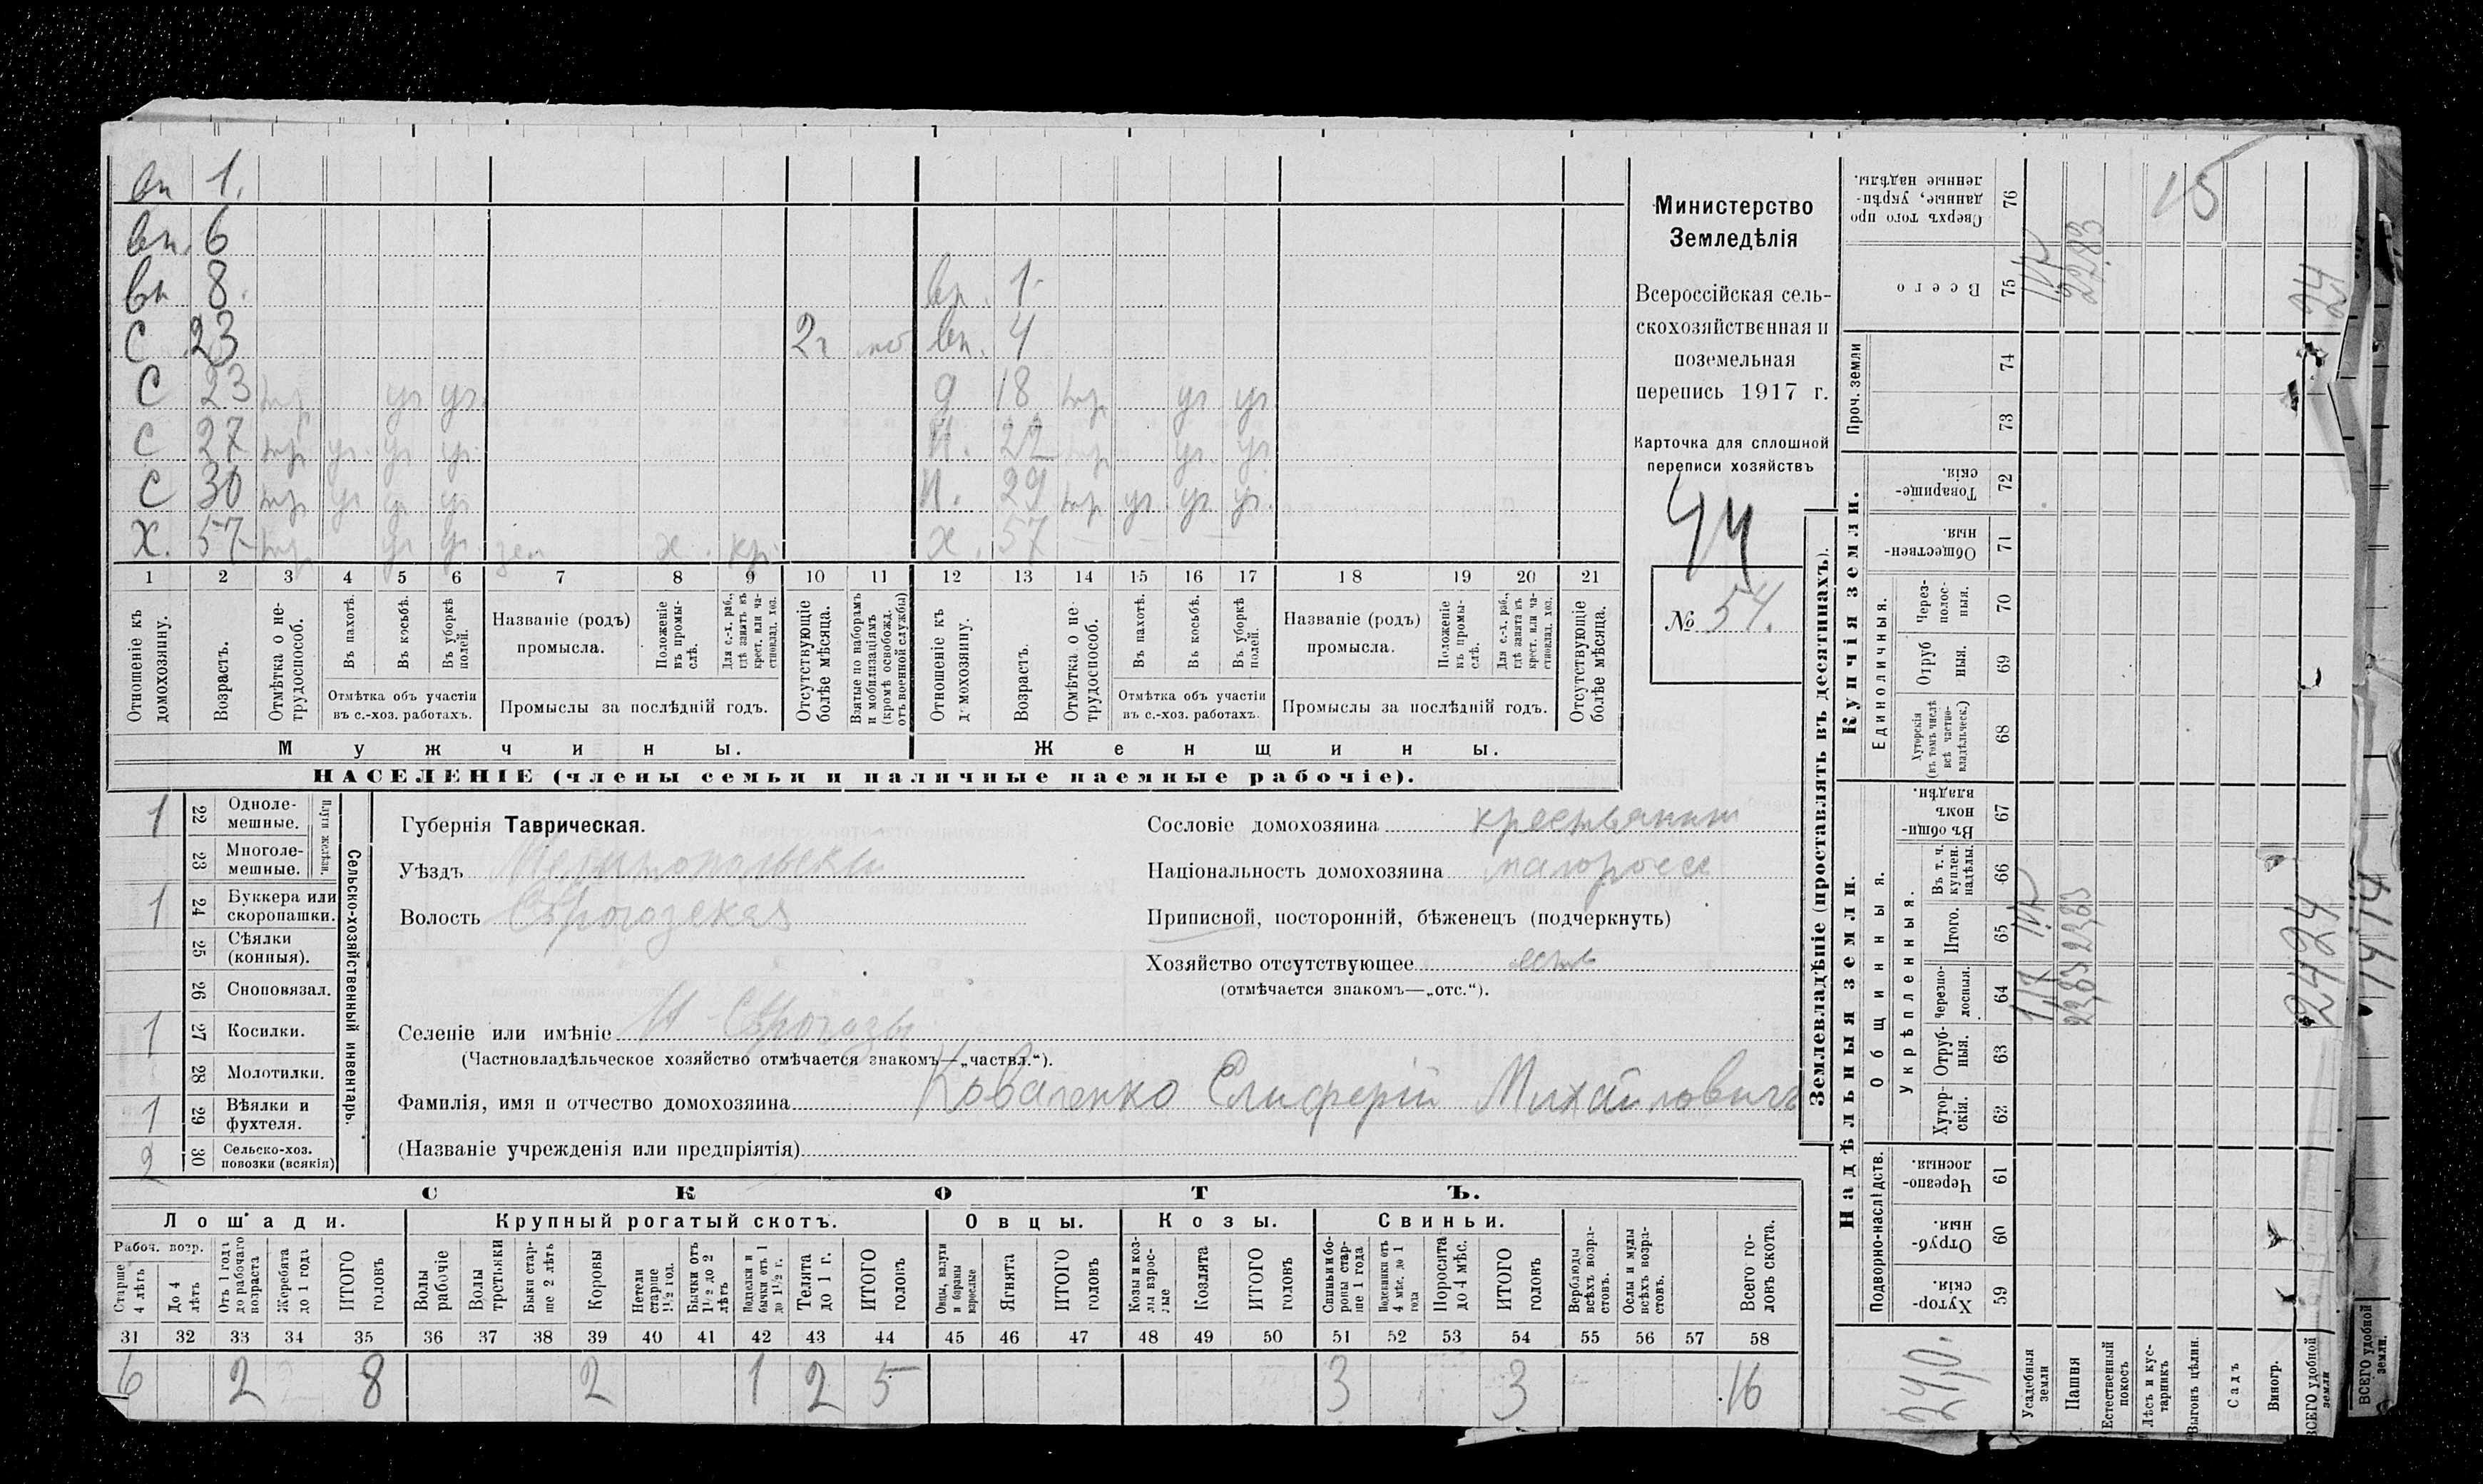 вн 1.
вн. 6
вн 8. вн. 1
С 23 2 г моб вн. 4
С 23 тр уг уг д 18 тр уг уг
С 27 тр уг уг уг н. 22 тр уг уг
С 30 тр уг уг уг н. 29 тр уг уг уг
х. 57 тр уг уг зем х. кр х. 57 — — — —
1 2 3 4 5 6 7 8 9 10 11 12 13 14 15 16 17 18 19 20 21
Отношеніе къ домохозяину.
Возрастъ.
Отмѣтка о нетрудоспособ.
Въ пахотѣ.
Въ косьбѣ.
Въ уборкѣ полей.
Отмѣтка объ участіи въ с.-хоз. работахъ.
Названіе (родъ) промысла.
Положеніе въ промыслѣ.
Для с.-х. раб., гдѣ занятъ въ крест. или частновлад. хоз.
Промыслы за послѣдній годъ.
Отсутствующіе болѣе мѣсяца.
Взятые по наборамъ и мобилизаціямъ (кромѣ освобожд. отъ военной службы)
Отношеніе къ домохозяину.
Возрастъ.
Отмѣтка о нетрудоспособ.
Въ пахотѣ.
Въ косьбѣ.
Въ уборкѣ полей.
Отмѣтка объ участіи въ с.-хоз. работахъ.
Названіе (родъ) промысла.
Положеніе въ промыслѣ.
Для с.-х. раб., гдѣ занята въ крест. или частновлад. хоз.
Промыслы за послѣдній годъ.
Отсутствующіе болѣе мѣсяца.
Мужчины. Женщины.
НАСЕЛЕНІЕ (члены семьи и наличные наемные рабочіе).
Министерство
Земледѣлія
Всероссійская сель-
скохозяйственная и
поземельная
перепись 1917 г.
Карточка для сплошной
переписи хозяйствъ
44
№ 54.
Сельско-хозяйственный инвентарь.
Плуги желѣзн.
1 22 Одноле-мешные.
23 Многоле-мешные.
1 24 Буккера или скоропашки.
25 Сѣялки (конныя).
26 Сноповязал.
1 27 Косилки.
28 Молотилки.
1 29 Вѣялки и фухтеля.
2 30 Сельско-хоз. повозки (всякія)
Губернія Таврическая.
Уѣздъ Мелитопольскій
Волость Сѣрогозская
Сословіе домохозяина крестьянинъ
Національность домохозяина малороссъ
Приписной, посторонній, бѣженецъ (подчеркнуть)
Хозяйство отсутствующее есть
(отмѣчается знакомъ—„отс.“).
Селеніе или имѣніе Н Сѣрогозы
(Частновладѣльческое хозяйство отмѣчается знакомъ—„частвл.“).
Фамилія, имя и отчество домохозяина Коваленко Елиферій Михайловичъ
(Названіе учрежденія или предпріятія)
СКОТЪ.
Лошади. Крупный рогатый скотъ. Овцы. Козы. Свиньи.
Рабоч. возр.
Старше 4 лѣтъ
До 4 лѣтъ
Отъ 1 года до рабочаго возраста
Жеребята до 1 года
ИТОГО головъ
Волы рабочіе
Волы третьяки
Быки старше 2 лѣтъ
Коровы
Нетели старше 1½ год.
Бычки отъ 1½ до 2 лѣтъ
Подтелки и бычки отъ 1 до 1½ г.
Телята до 1 г.
ИТОГО головъ
Овцы, валухи и бараны взрослые
Ягнята
ИТОГО головъ
Козы и козлы взрослые
Козлята
ИТОГО головъ
Свиньи и боровы старше 1 года
Подсвинки отъ 4 мѣс. до 1 года
Поросята до 4 мѣс.
ИТОГО головъ
Верблюды всѣхъ возрастовъ.
Ослы и мулы всѣхъ возрастовъ.
Всего головъ скота.
31 32 33 34 35 36 37 38 39 40 41 42 43 44 45 46 47 48 49 50 51 52 53 54 55 56 57 58
6 2 8 2 1 2 5 3 3 16
Землевладѣніе (проставлять въ десятинахъ).
Надѣльныя земли. Купчія земли.
Подворно-наслѣдств.
Общинныя.
Укрѣпленныя.
Единоличныя.
Проч. земли
Хуторскія 59
Отрубныя. 60
Черезполосныя. 61
Хуторскія. 62
Отрубныя. 63
Черезполосныя. 64
Итого. 65
Въ т. ч. куплен. надѣлы. 66
Въ общинномъ владѣн. 67
Хуторскія (въ томъ числѣ всѣ частновладѣльческ.) 68
Отрубныя. 69
Черезполосныя. 70
Общественныя. 71
Товарищескія. 72
73
74
Всего 75
Сверхъ того проданные, укрѣпленные надѣлы. 76
24,0.
Усадебныя земли 117 117 117
Пашня 22,83 22,83 22,83
Естественный покосъ
Лѣсъ и кустарникъ 15
Выгонъ цѣлин.
Садъ
Виногр.
ВСЕГО удобной земли 24 24 24
ВСЕГО удобной земли.